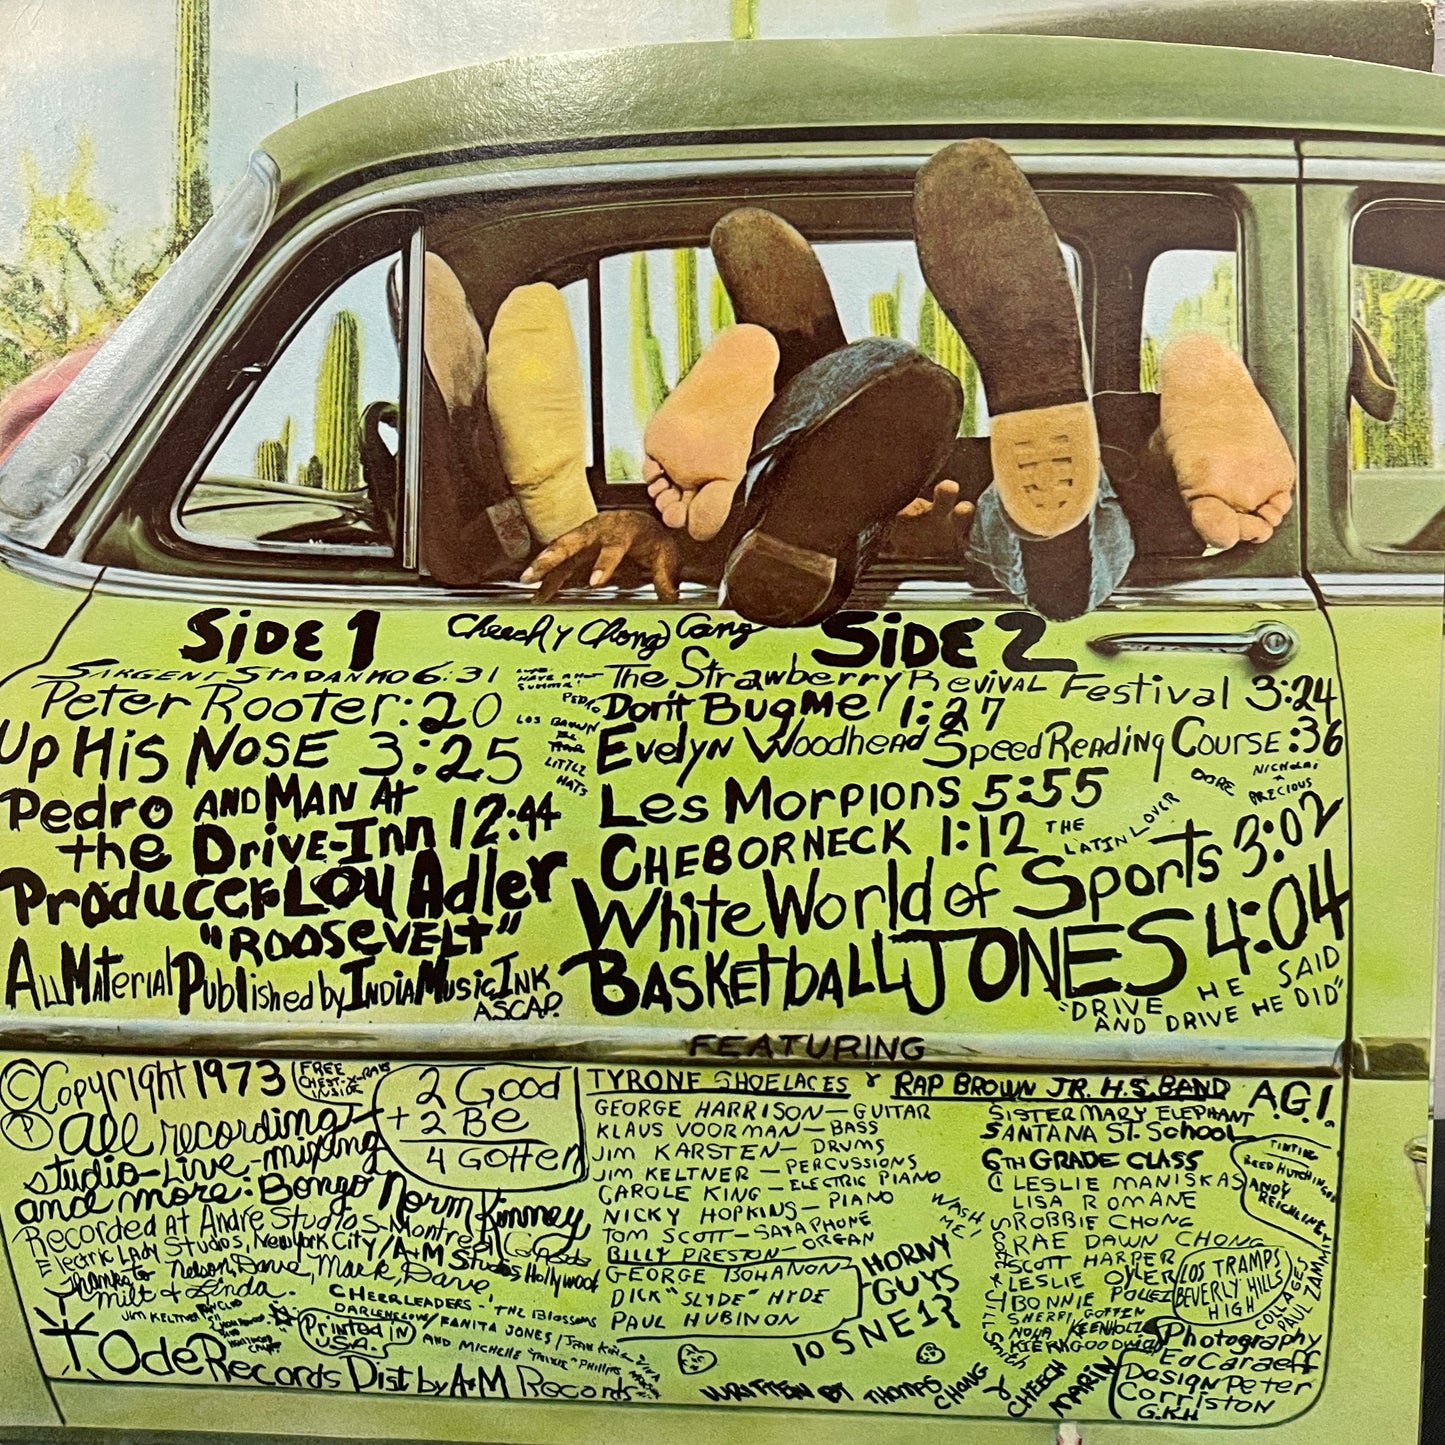 SiDE 1
Cheech y Chong Gang
SARGENT STADANKO 6:31
Peter Rooter :20
Up His NOSE 3:25
Pedro AND MAN At
the Drive-Inn 12:44
Producer Lou Adler
"ROOSEVELT"
All Material Published by India Music Ink
ASCAP.
PEDRO
LOS BROWN
LITTLE
HATS
SiDE 2
The Strawberry Revival Festival 3:24
Don't Bug Me 1:27
Evelyn Woodhead Speed Reading Course :36
Les Morpions 5:55
CHEBORNECK 1:12
White World of Sports 3:02
BASKETbALL JONES 4:04
THE
LATIN LOVER
PRECIOUS
"DRIVE HE SAID
AND DRIVE HE DID"
FEATURING
© Copyright 1973
FREE
CHEST-X-RAYS
INSIDE
Ⓟ All recording
studio-Live-mixing
and more: Bongo Norm Kinney
2 Good
+ 2 Be
4 Gotten
Recorded At Andre Studios-Montreal Canada
Electric Lady Studios, New York City/A+M Studios Hollywood
Thanks to Nelson, Dave, Mark, Dave,
Milt & Linda.
JIM KELTNER FAN CLUB
CHEERLEADERS - THE Blossoms
DARLENE LOVE/FANITA JONES/JEAN KING
AND MICHELLE PHILLIPS
Printed IN
U.S.A.
Ode Records Dist by A+M Records
TYRONE SHOELACES & RAP BROWN JR. H.S. BAND
GEORGE HARRISON—GUITAR
KLAUS VOORMAN—BASS
JIM KARSTEN—DRUMS
JIM KELTNER—PERCUSSIONS
CAROLE KING—ELECTRIC PIANO
NICKY HOPKINS—PIANO
TOM SCOTT—SAXAPHONE
BILLY PRESTON—ORGAN
GEORGE BOHANON
DICK "SLYDE" HYDE
PAUL HUBINON
HORNY
GUYS
WASH
ME!
10 SNE1?
A.G.!
SISTER MARY ELEPHANT
SANTANA ST. School
6TH GRADE CLASS
LESLIE MANISKAS
LISA ROMANE
ROBBIE CHONG
RAE DAWN CHONG
SCOTT HARPER
LESLIE OYLER
BONNIE POLLEZ
SHERPI GOTTEN
NOLA KEENHOLZ
KIERA GOODWIN
REED HUTCHINGS
ANDY
REICHLINE
LOS TRAMPS
BEVERLY HILLS
HIGH
COLLAGES
PAUL ZAMMIT
Photography
Ed Caraeff
Design Peter
Corriston
G.K.H
WRITTEN BY THOMAS CHONG & CHEECH MARIN